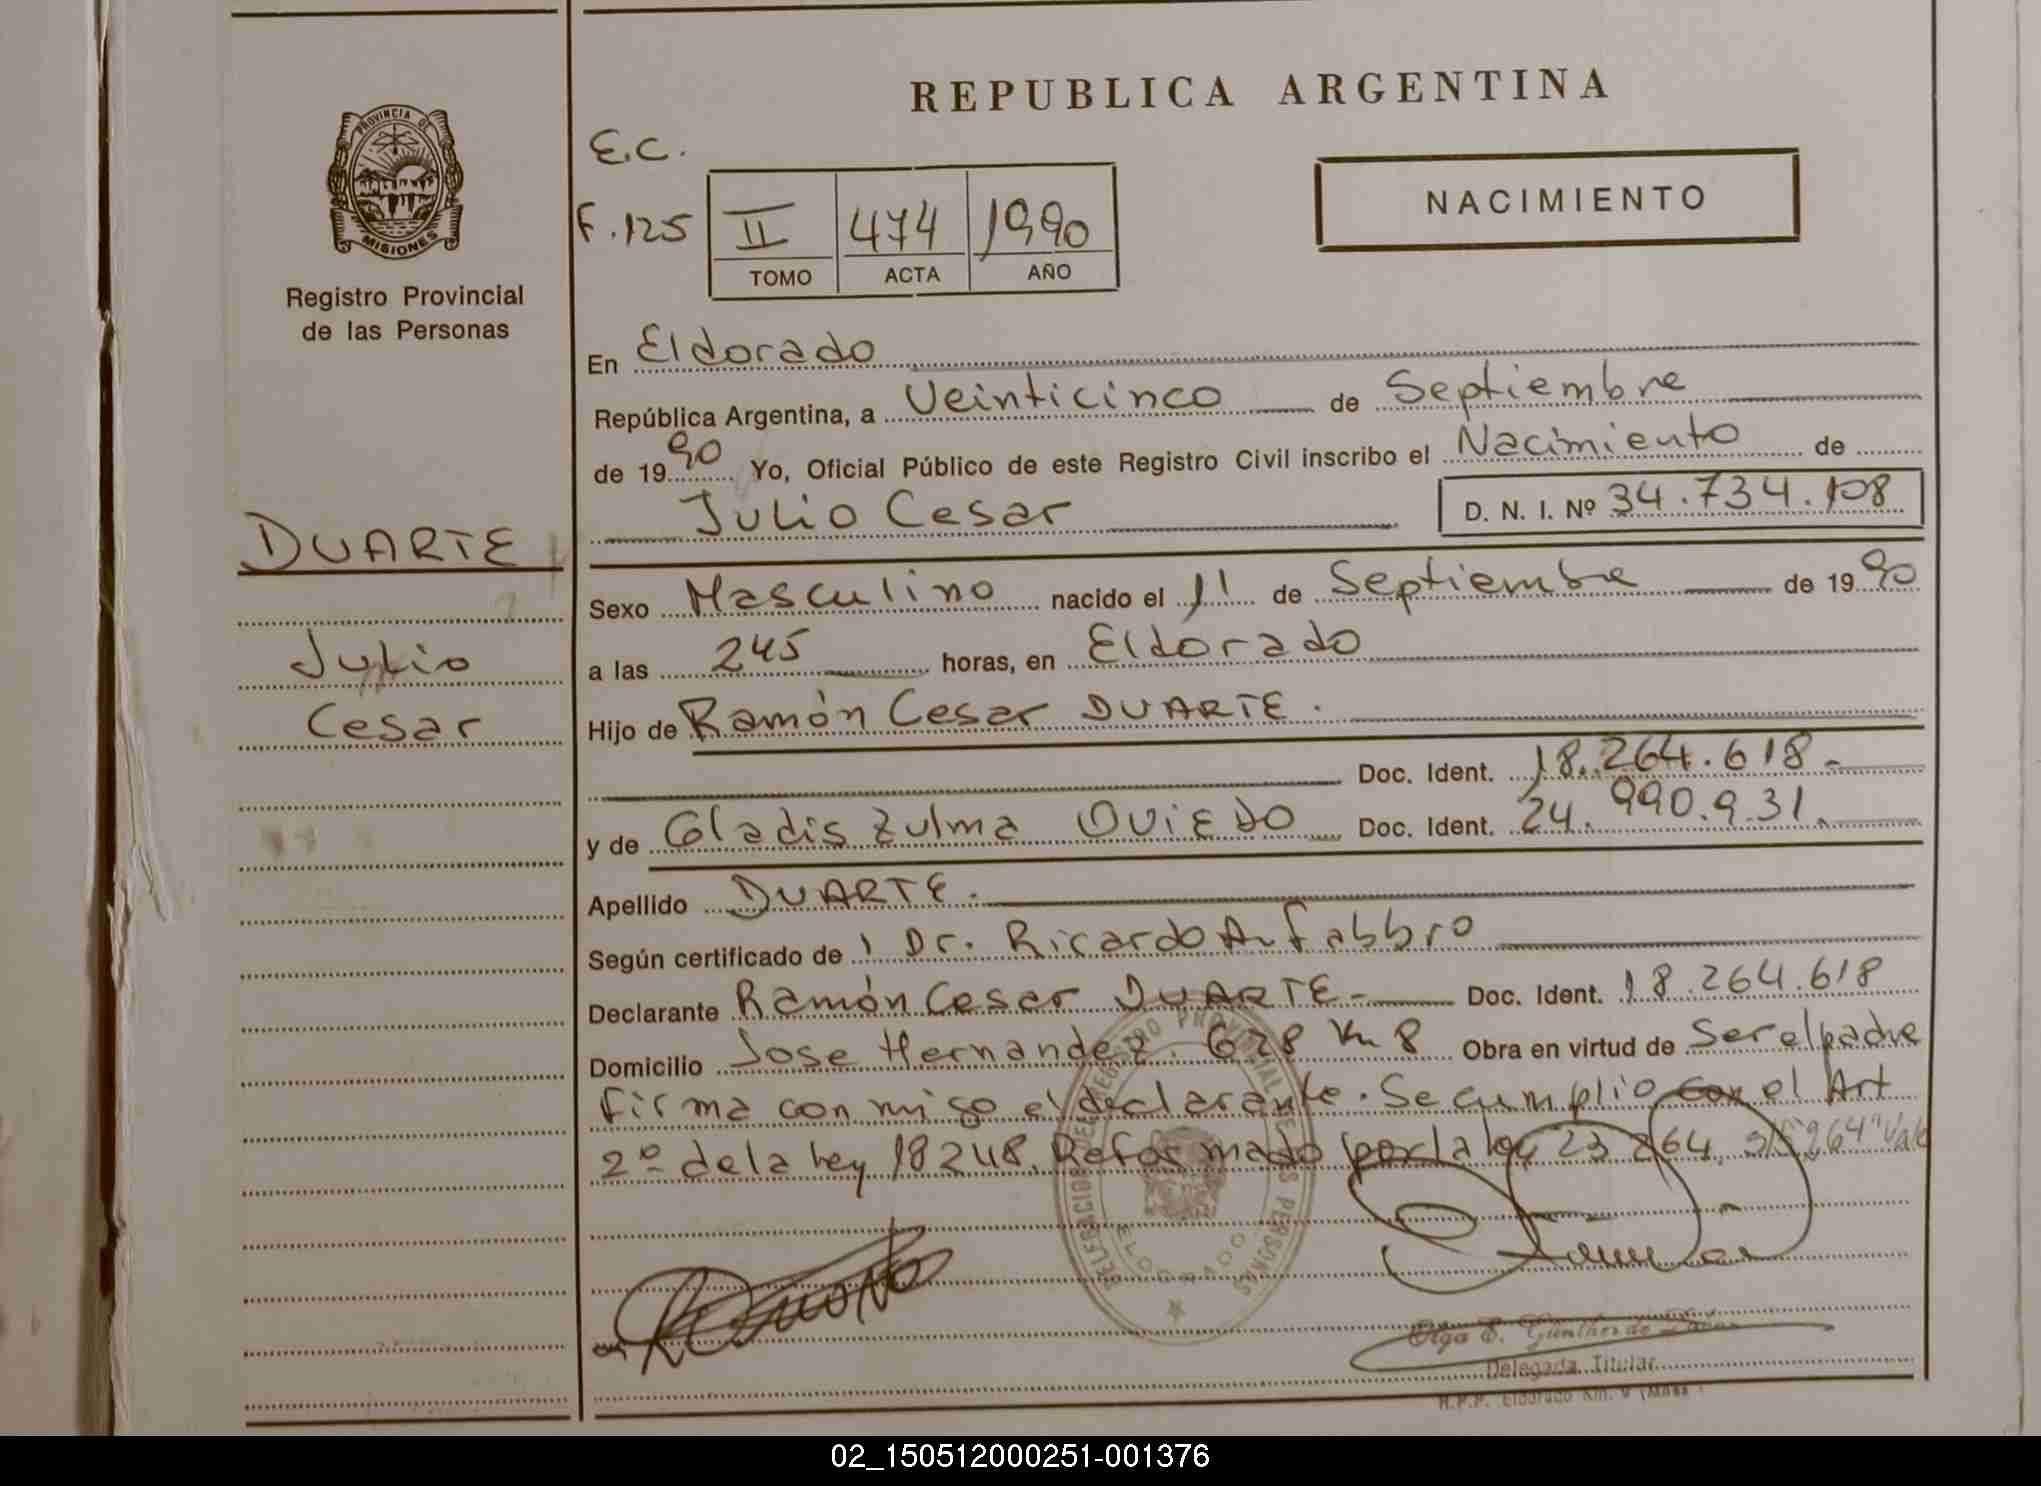 REPUBLICA ARGENTINA
PROVINCIA DE
MISIONES
Registro Provincial
de las Personas
E.C.
F. 125
II 474 1990
TOMO ACTA AÑO
NACIMIENTO
En Eldorado
República Argentina, a Veinticinco de Septiembre
de 1990 Yo, Oficial Público de este Registro Civil inscribo el Nacimiento de
Julio Cesar D. N. I. Nº 34.734.108
DUARTE
Julio
Cesar
Sexo Masculino nacido el 11 de Septiembre de 1990
a las 245 horas, en Eldorado
Hijo de Ramón Cesar DUARTE.
Doc. Ident. 18.264.618.-
y de Gladis Zulma OVIEDO Doc. Ident. 24.990.931.
Apellido DUARTE.
Según certificado de Dr. Ricardo A. Fabbro
Declarante Ramón Cesar DUARTE- Doc. Ident. 18.264.618
Domicilio Jose Hernandez. 628 Km 8 Obra en virtud de Ser el padre
Firma con migo el declarante. Se cumplio con el Art
2º de la Ley 18248. Reformado por la ley 23264. s/r 264 "Vale
DELEGACION DEL REGISTRO PROVINCIAL DE LAS PERSONAS
ELDORADO
Olga E. Günther de
Delegada Titular
R.P.P. Eldorado Km. 9 (Mnes.)
02_150512000251-001376